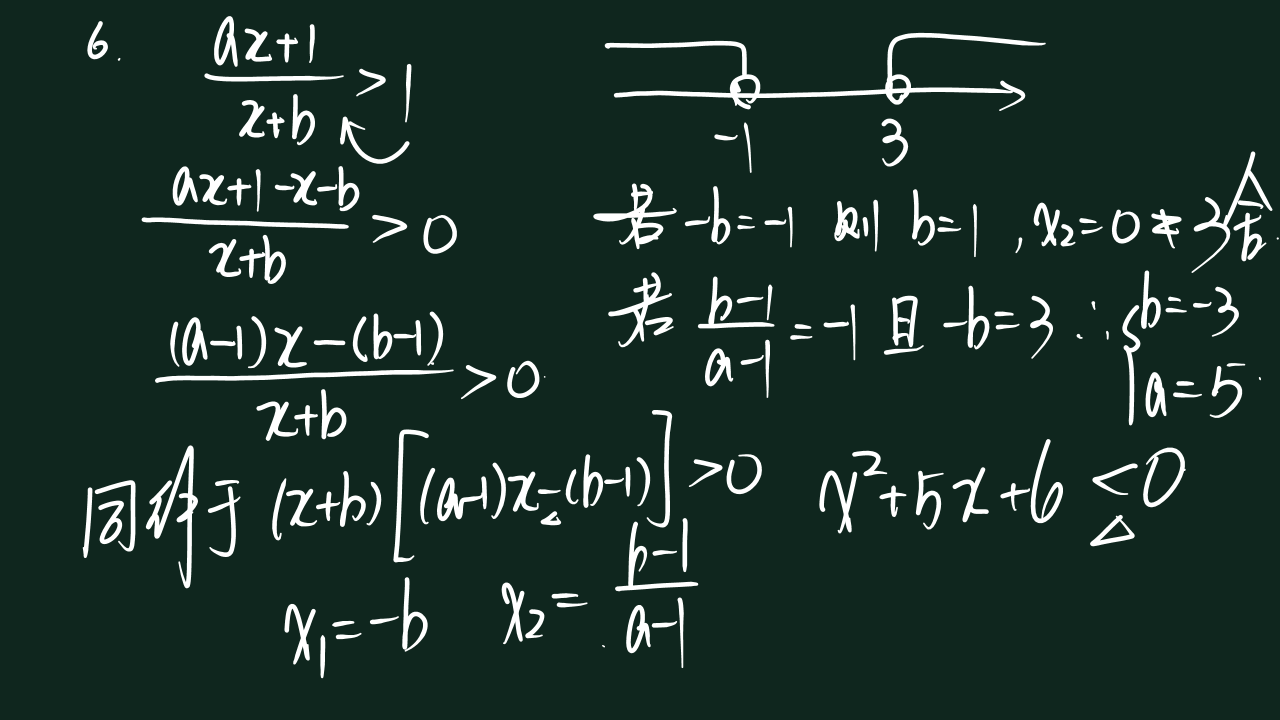 6.
ax+1/x+b > 1
ax+1-x-b/x+b > 0
(a-1)x-(b-1)/x+b > 0
同解于 (x+b)[(a-1)x-(b-1)]>0
x₁=-b x₂=b-1/a-1
-1 3
若 -b=-1 则 b=1 , x₂=0≠3 舍去.
若 b-1/a-1 =-1 且 -b=3 ∴{b=-3
a=5
x²+5x+6 <0